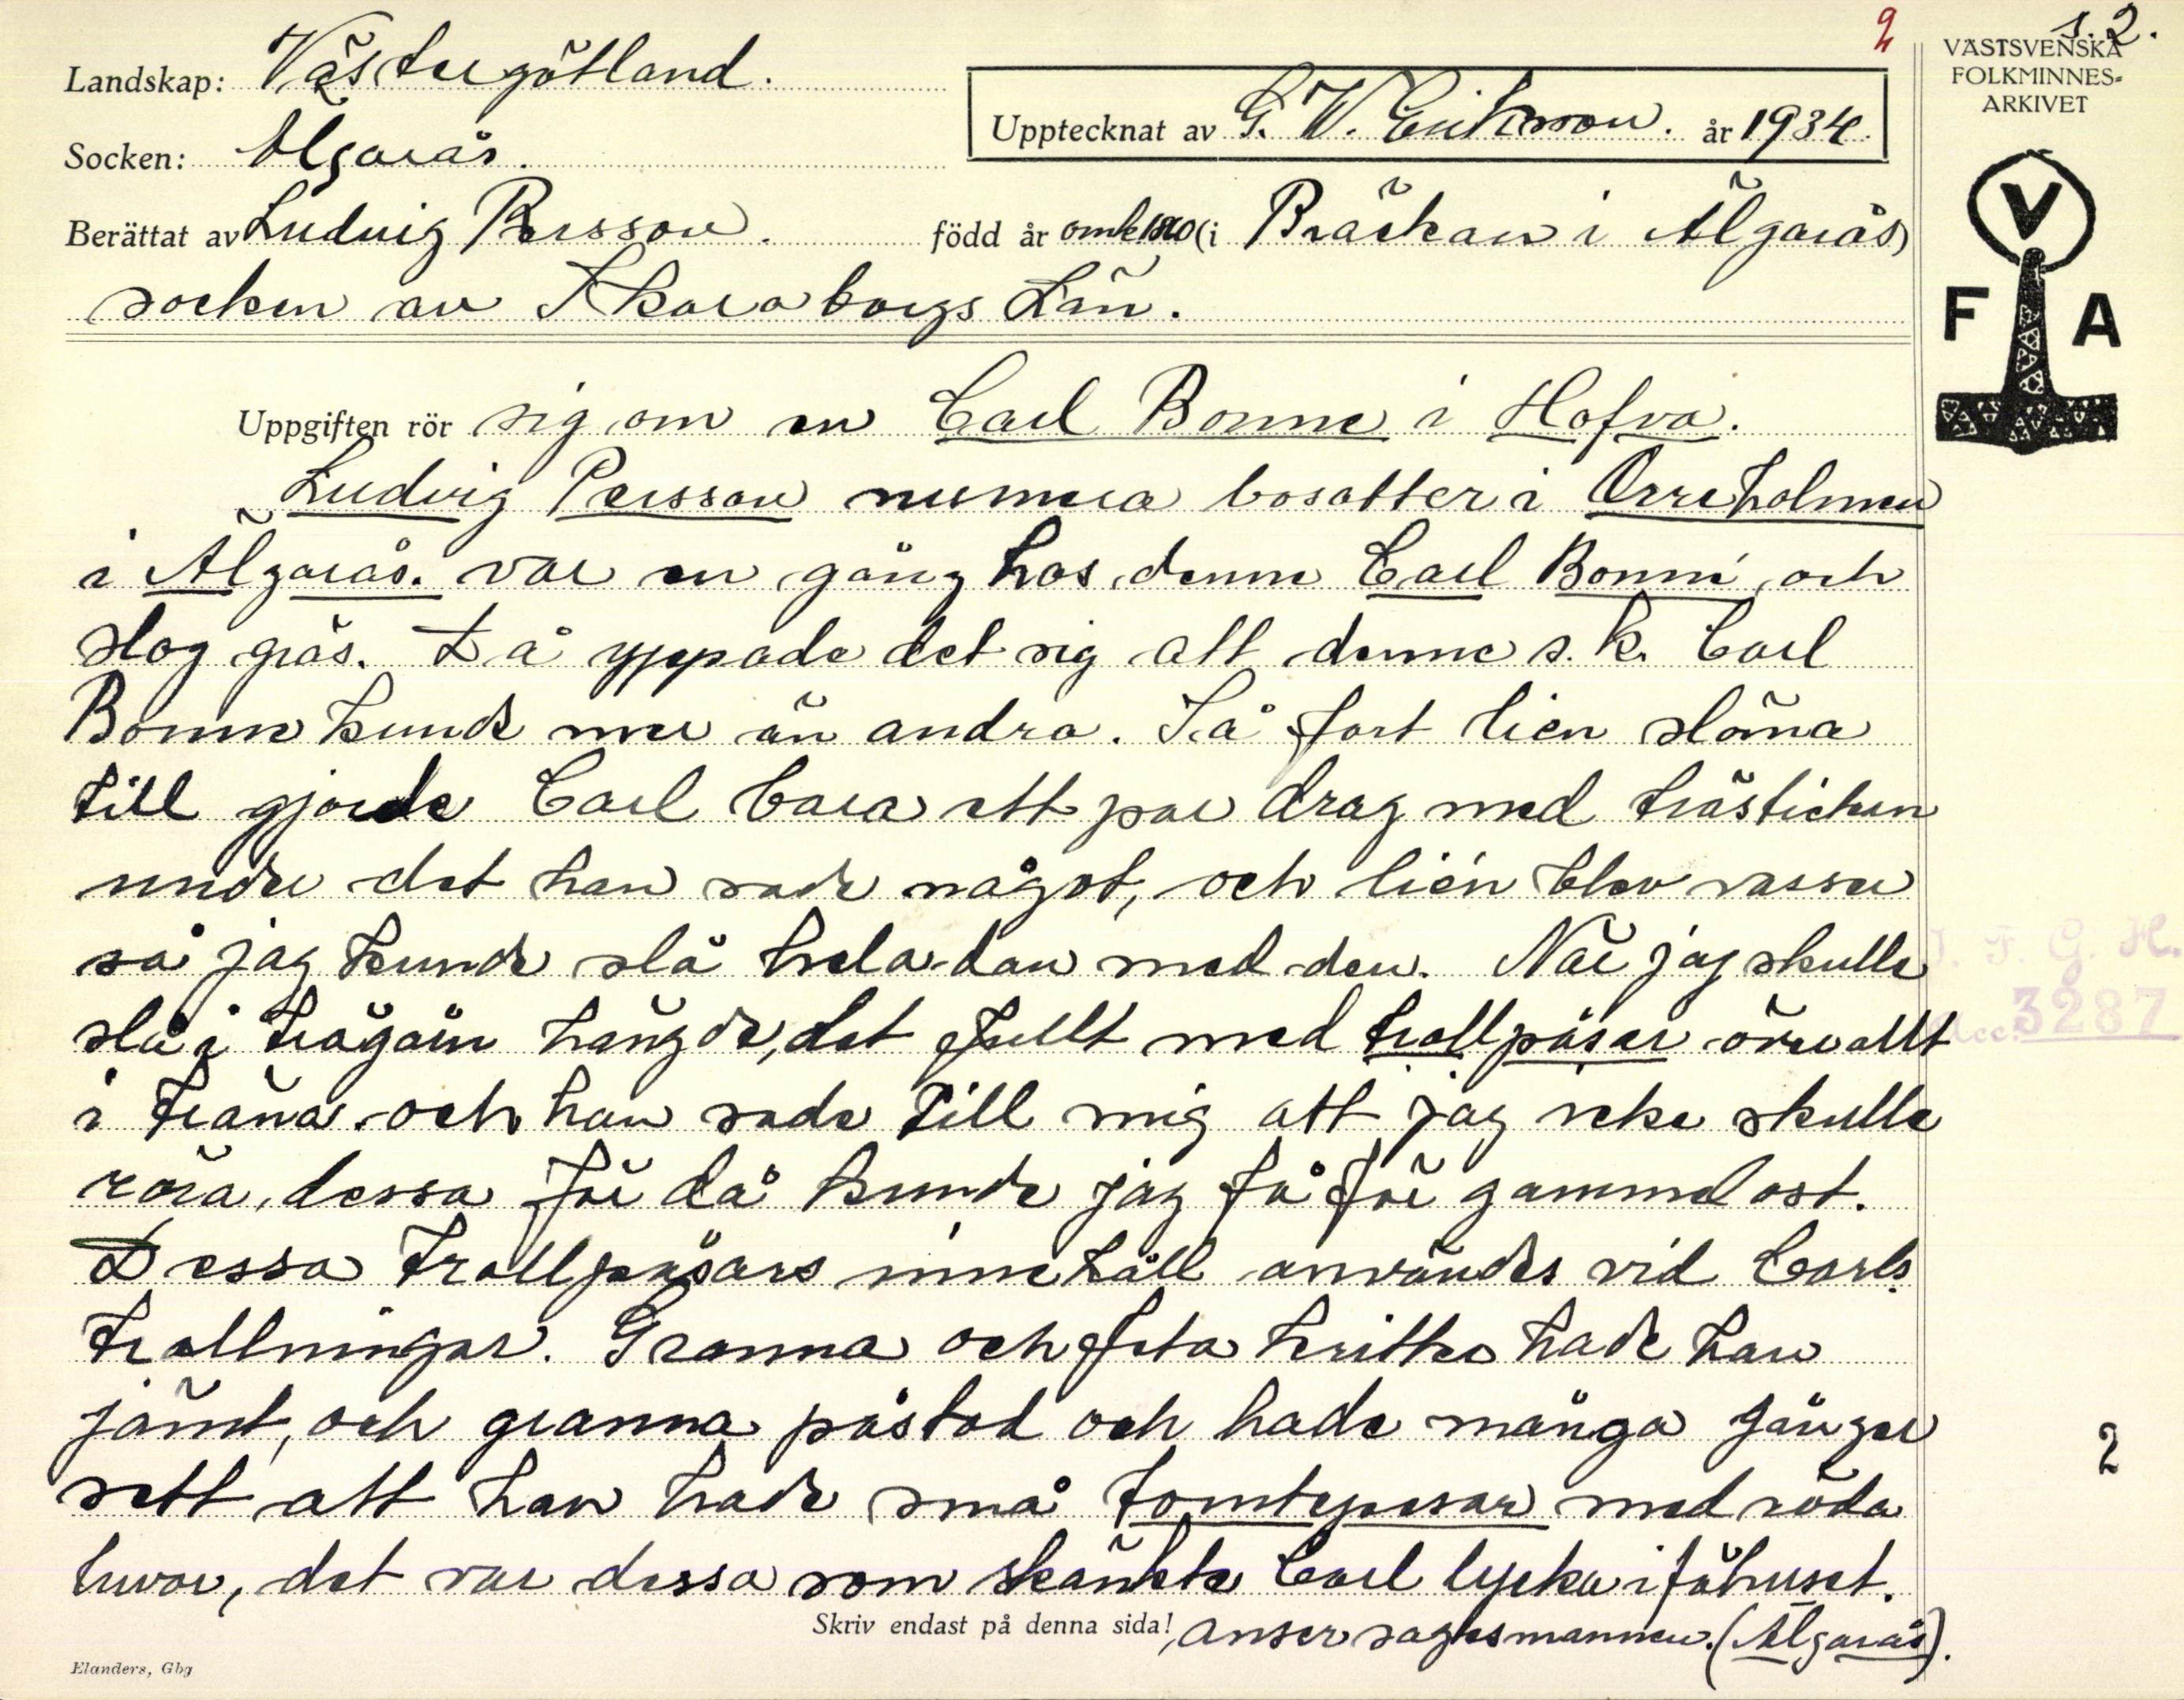 2
s. 2.
VÄSTSVENSKA
FOLKMINNES-
ARKIVET
V
F A
Landskap: Västergötland.
Upptecknat av G. W. Erikson. år 1934.
Socken: Älgarås.
Berättat av Ludvig Persson. född år omk (i Bräckan i Älgarås)
socken av Skaraborgs Län.
Uppgiften rör sig om en Carl Bonne i Hofva.
Ludvig Persson numera bosatter i Orreholmen
i Älgarås. var en gång hos denne Carl Bonne, och
slog gräs. Då yppade det sig att denne s.k. Carl
Bonne kunde mer än andra. Så fort lien slöna
till gjorde Carl bara ett par drag med trästickan
under det han sade något, och lien blev vasser
så jag kunde slå hela dan med den. När jag skulle
slå i trägårn hängde, det fullt med trollpåsar överallt
i träna och han sade till mig att jag icke skulle
röra, dessa för då kunde jag få för gammel ost.
Dessa trollpåsars innehåll användes vid Carls
trollningar. Granna och feta kritter hade han
jämt, och granna påstod och hade många gånger
sett att han hade små tomtepesar med röda
luvor, det var dessa som skänkte Carl lycka i fähuset.
Skriv endast på denna sida! anser sagesmannen. (Älgarås).
Elanders, Gbg
I. F. G. H.
Acc. 3287
2